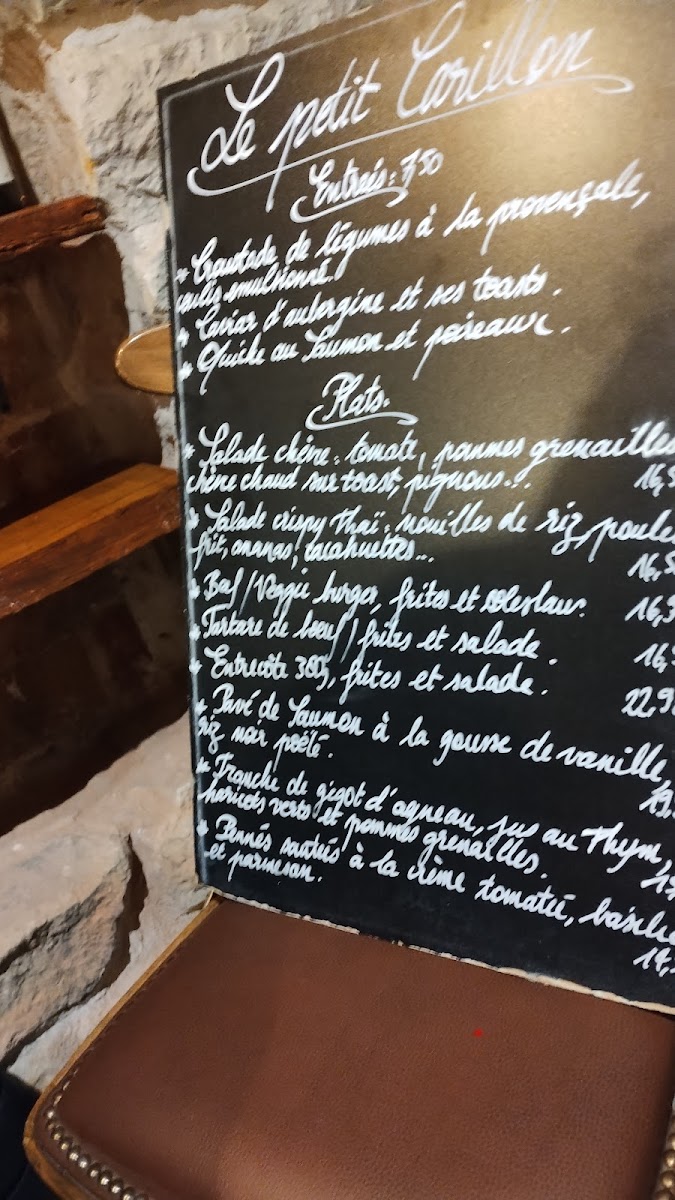 Le petit Carillon
Entrées: 7,50
* Croustade de légumes à la provençale,
coulis emulsionné.
* Caviar d'aubergine et ses toasts.
* Quiche au Saumon et poireaux.
Plats.
* Salade chèvre: tomate, pommes grenailles
chèvre chaud sur toast, pignons... 16,5
* Salade crispy Thaï: nouilles de riz, poulet
frit, ananas, cacahuettes... 16,5
* Beef/Veggie burger, frites et coleslaw. 16,9
* Tartare de boeuf, frites et salade. 16,
* Entrecôte 300g, frites et salade. 22,9
* Pavé de Saumon à la gousse de vanille,
riz noir poêlé. 19,
* Tranche de gigot d'agneau, jus au Thym,
haricots verts et pommes grenailles. 19,
* Pennés à la crème tomatée, basilic
et parmesan. 14,